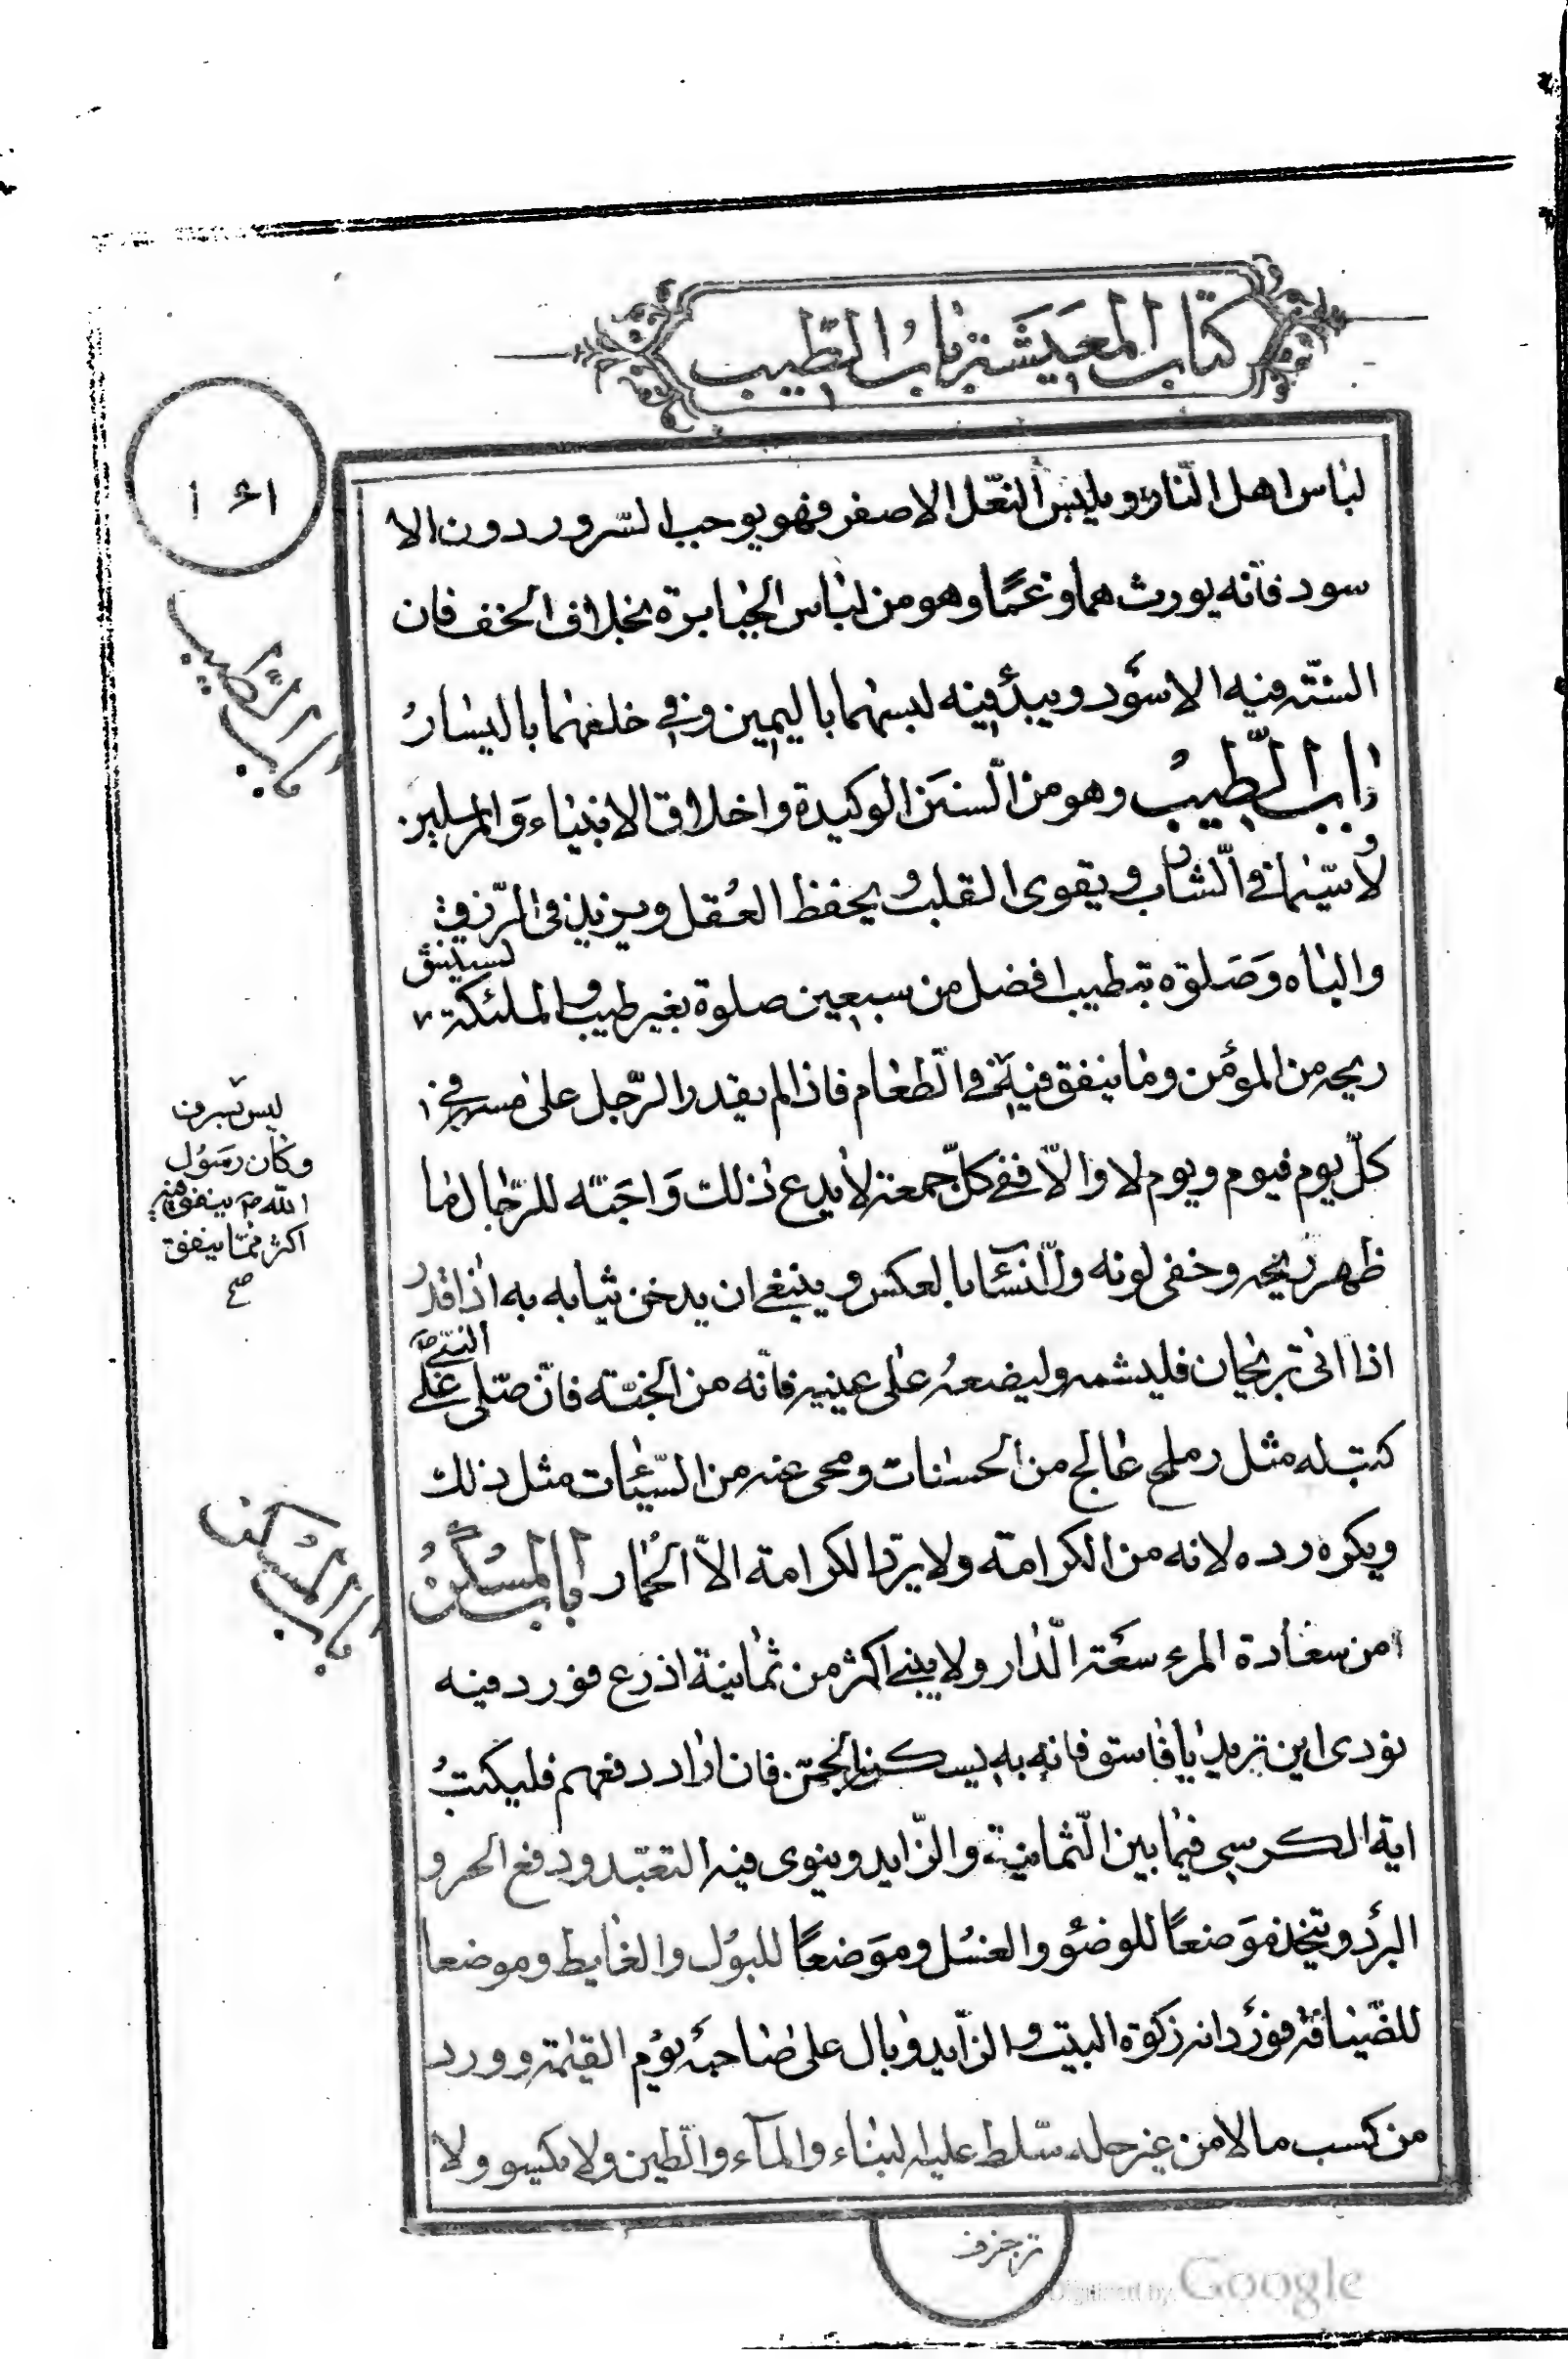 كتاب المعيشة باب الطيب
لباس اهل النار ويلبس النعل الاصفر فهو يوجب السرور دون الا
سود فانه يورث هما وغمّا وهو من لباس الجبابرة بخلاف الخف فان
السنّة فيه الاسود ويبدء فيه لبسهما باليمين وفي خلعهما باليسار
باب الطيب وهو من السنن الوكيدة واخلاق الانبياء والمرسلين
لاسيّما في الشارب ويقوى القلب ويحفظ العقل ويزيد في الرزق
والباه وصلوة بتطيب افضل من سبعين صلوة بغير طيب والملئكة تستنشق
ريحه من المؤمن وما ينفق فيه في الطعام فاذا لم يقدر الرّجل على مسه في
كلّ يوم فيوم ويوم لا والّا ففي كلّ جمعة لا يدع ذلك واحبّه للرّجال ما
ظهر ريحه وخفى لونه وللنّساء بالعكس وينبغي ان يدخن ثيابه به اذا قدر
اذا اتى بريحان فليشمه وليضعه على عينيه فانّه من الجنّة فان صلّى على النبي ص
كتب له مثل رمل عالج من الحسنات ومحى عنه من السّيّئات مثل ذلك
ويكره رده لانه من الكرامة ولا يردّ الكرامة الاّ الحمار باب المسكن
من سعادة المرء سعة الدّار ولا يبني اكثر من ثمانية اذرع فورد فيه
نودى اين تريد يا فاسق فانه به يسكن الجن فان اراد دفعهم فليكتب
اية الكرسي فيما بين الثّمانية والزّايد وينوى فيه التعبّد ودفع الحر و
البرد ويتخذ موضعًا للوضوء والغسل وموضعًا للبول والغايط وموضعا
للضّيافة فورد انه زكوة البيت والزّايد وبال على صاحبه يوم القيمة وورد
من كسب مالا من غير حله سلّط عليه البناء والماء والطّين ولا يكسو ولا
باب الطّيب
ليس بسرف
وكان رسول
الله ص ينفق فيه
اكثر ممّا ينفق
صح
باب المسكن
Digitized by Google